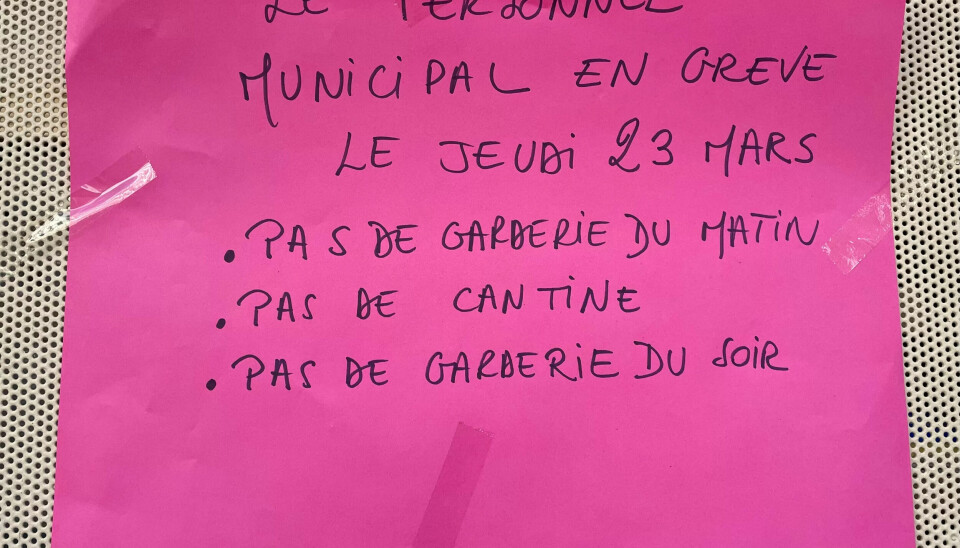 LE PERSONNEL
MUNICIPAL EN GREVE
LE JEUDI 23 MARS
. PAS DE GARDERIE DU MATIN
. PAS DE CANTINE
. PAS DE GARDERIE DU SOIR